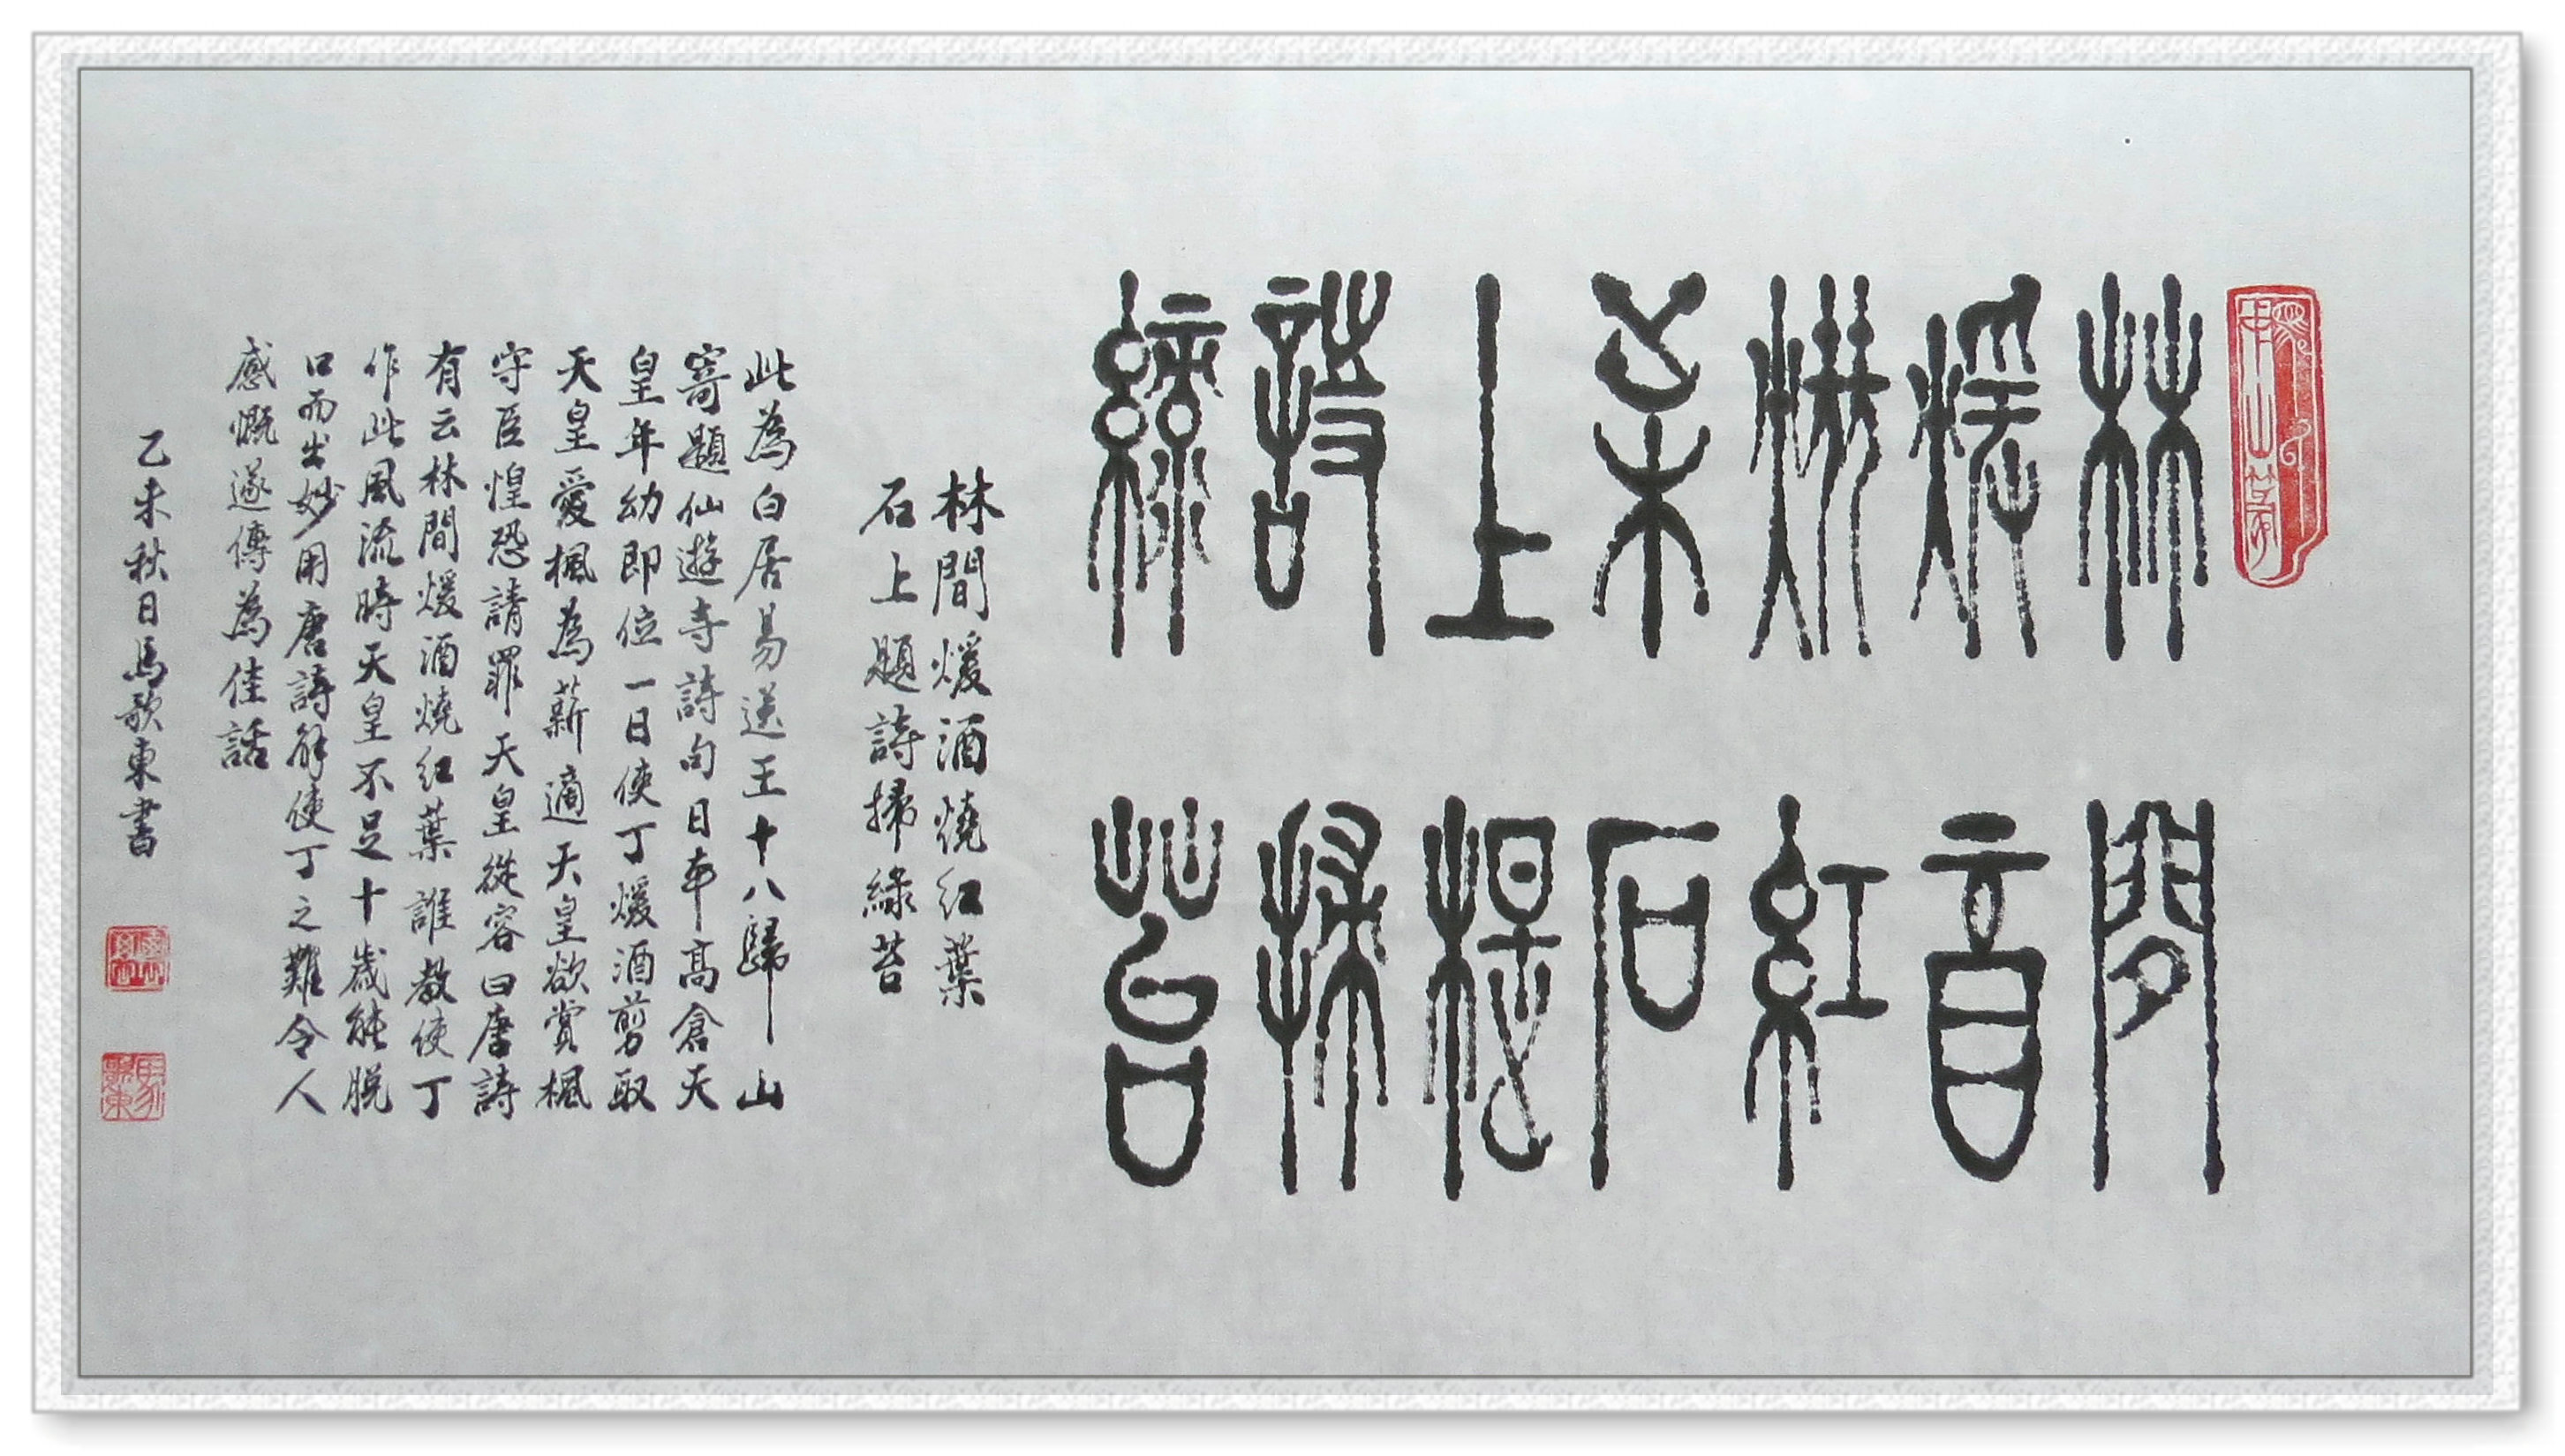 林間
煖酒
燒紅
葉石
上題
詩掃
綠苔
林間煖酒燒紅葉
石上題詩掃綠苔
此為白居易送王十八歸山
寄題仙遊寺詩句日本高倉天
皇年幼即位一日使丁煖酒剪取
天皇愛楓為薪適天皇欲賞楓
守臣惶恐請罪天皇從容曰唐詩
有云林間煖酒燒紅葉誰教使丁
作此風流時天皇不足十歲能脫
口而出妙用唐詩解使丁之難令人
感慨遂傳為佳話
乙未秋日馬歌東書
馬歌東